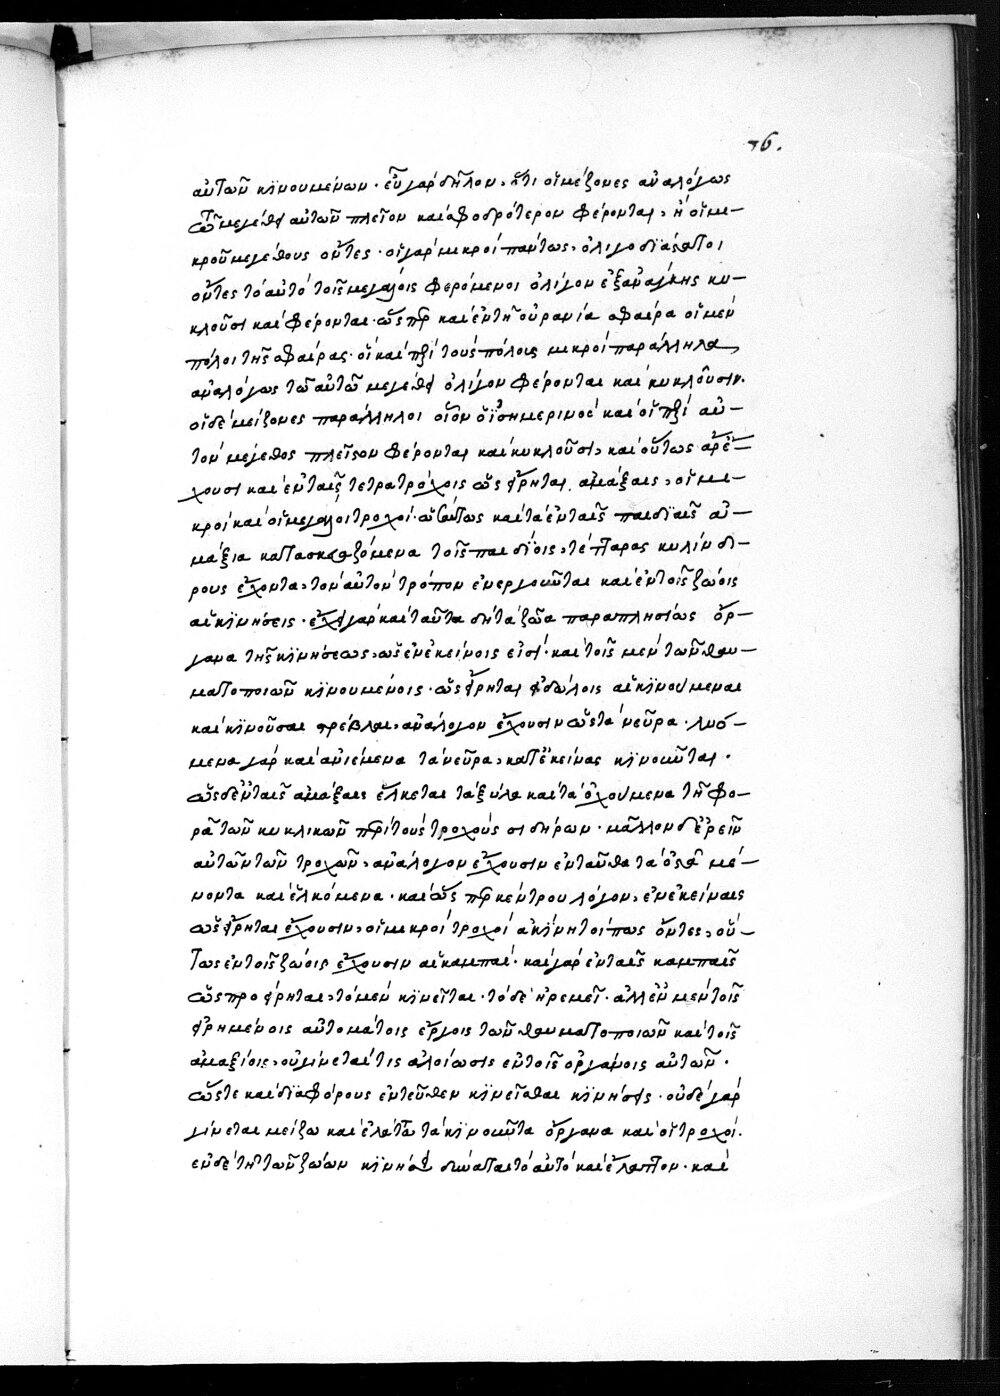 76.
αὐτῶν κινουμένων. εὖ γὰρ δῆλον, ὅτι οἱ μείζονες ἀναλόγως
τῶ μεγέθει αὐτῶν πλεῖον καὶ σφοδρότερον φέρονται, ἢ οἱ μι-
κροῦ μεγέθους ὄντες. οἱ γὰρ μικροὶ πάντως, ὀλιγοδιάστατοι
ὄντες τὸ αὐτὸ τοῖς μεγάλοις φερόμενοι ὀλίγον ἐξανάγκης κυ-
κλοῦσι καὶ φέρονται. ὥσπερ καὶ ἐν τῇ οὐρανία σφαίρα οἱ μὲν
πόλοι τῆς σφαίρας. οἱ καὶ περὶ τοὺς πόλους μικροὶ παράλληλοι
ἀναλόγως τῶ αὐτῶν μεγέθει ὀλίγον φέρονται καὶ κυκλοῦσιν.
οἱ δὲ μείζονες παράλληλοι οἷον ὁ ἰσημερινὸς καὶ οἱ περὶ αὐ-
τὸν μέγεθος πλεῖστον φέρονται καὶ κυκλοῦσι, καὶ οὕτως ἄρ ἔ-
χουσι καὶ ἐν ταῖς τετρατρόχοις ὡς εἴρηται ἁμάξαις, οἱ μι-
κροὶ καὶ οἱ μεγάλοι τροχοί. ὡσαύτως καὶ τὰ ἐν ταῖς παιδιαῖς ἁ-
μάξια κατασκευαζόμενα τοῖς παιδίοις, τέτταρας κυλίνδ-
ρους ἔχοντα, τὸν αὐτὸν τρόπον ἐνεργοῦνται καὶ ἐν τοῖς ζώοις
αἱ κινήσεις. ἔχει γὰρ καὶ ταῦτα δὴ τὰ ζῶα παραπλησίως ὄρ-
γανα τῆς κινήσεως, ὡς ἐν ἐκείνοις εἰσί. καὶ τοῖς μὲν τῶν θαυ-
ματοποιῶν κινουμένοις. ὡς εἴρηται εἰδώλοις αἱ κινούμεναι
καὶ κινοῦσαι στρέβλαι, ἀνάλογον ἔχουσιν ὡς τὰ νεῦρα. λυό-
μενα γὰρ καὶ ἀνιέμενα τὰ νεῦρα, κατ' ἐκείνας κινοῦνται.
ὡς δ' ἐν ταῖς ἁμάξαις ἕλκεται τὰ ξύλα καὶ τὰ ὀχούμενα τῇ φο-
ρᾶ τῶν κυκλικῶν περὶ τοὺς τροχοὺς σιδήρων. μᾶλλον δ' ἐρεῖν
αὐτῶν τῶν τροχῶν, ἀνάλογον ἔχουσιν ἐνταῦθα τὰ ὀστᾶ μέ-
νοντα καὶ ἑλκόμενα. καὶ ὥσπερ κέντρου λόγον, ἐν ἐκείναις
ὡς εἴρηται ἔχουσιν, οἱ μικροὶ τροχοὶ ἀκίνητοί πως ὄντες, οὕ-
τως ἐν τοῖς ζώοις ἔχουσιν αἱ καμπαί. καὶ γὰρ ἐν ταῖς καμπαῖς
ὡς προείρηται, τὸ μὲν κινεῖται. τὸ δὲ ἠρεμεῖ. ἀλλ' ἐν μὲν τοῖς
εἰρημένοις αὐτομάτοις ἔργοις τῶν θαυματοποιῶν καὶ τοῖς
ἁμαξίοις, οὐ γίνεταί τις ἀλοίωσις ἐν τοῖς ὀργάνοις αὐτῶν.
ὥστε καὶ διαφόρους ἐντεῦθεν κινεῖσθαι κινήσεις. οὐδὲ γὰρ
γίνεται μείζω καὶ ἐλάττω τὰ κινοῦντα ὄργανα καὶ οἱ τροχοί.
ἐν δὲ τῇ τῶν ζώων κινήσει δύναται τὸ αὐτὸ καὶ ἔλαττον. καὶ